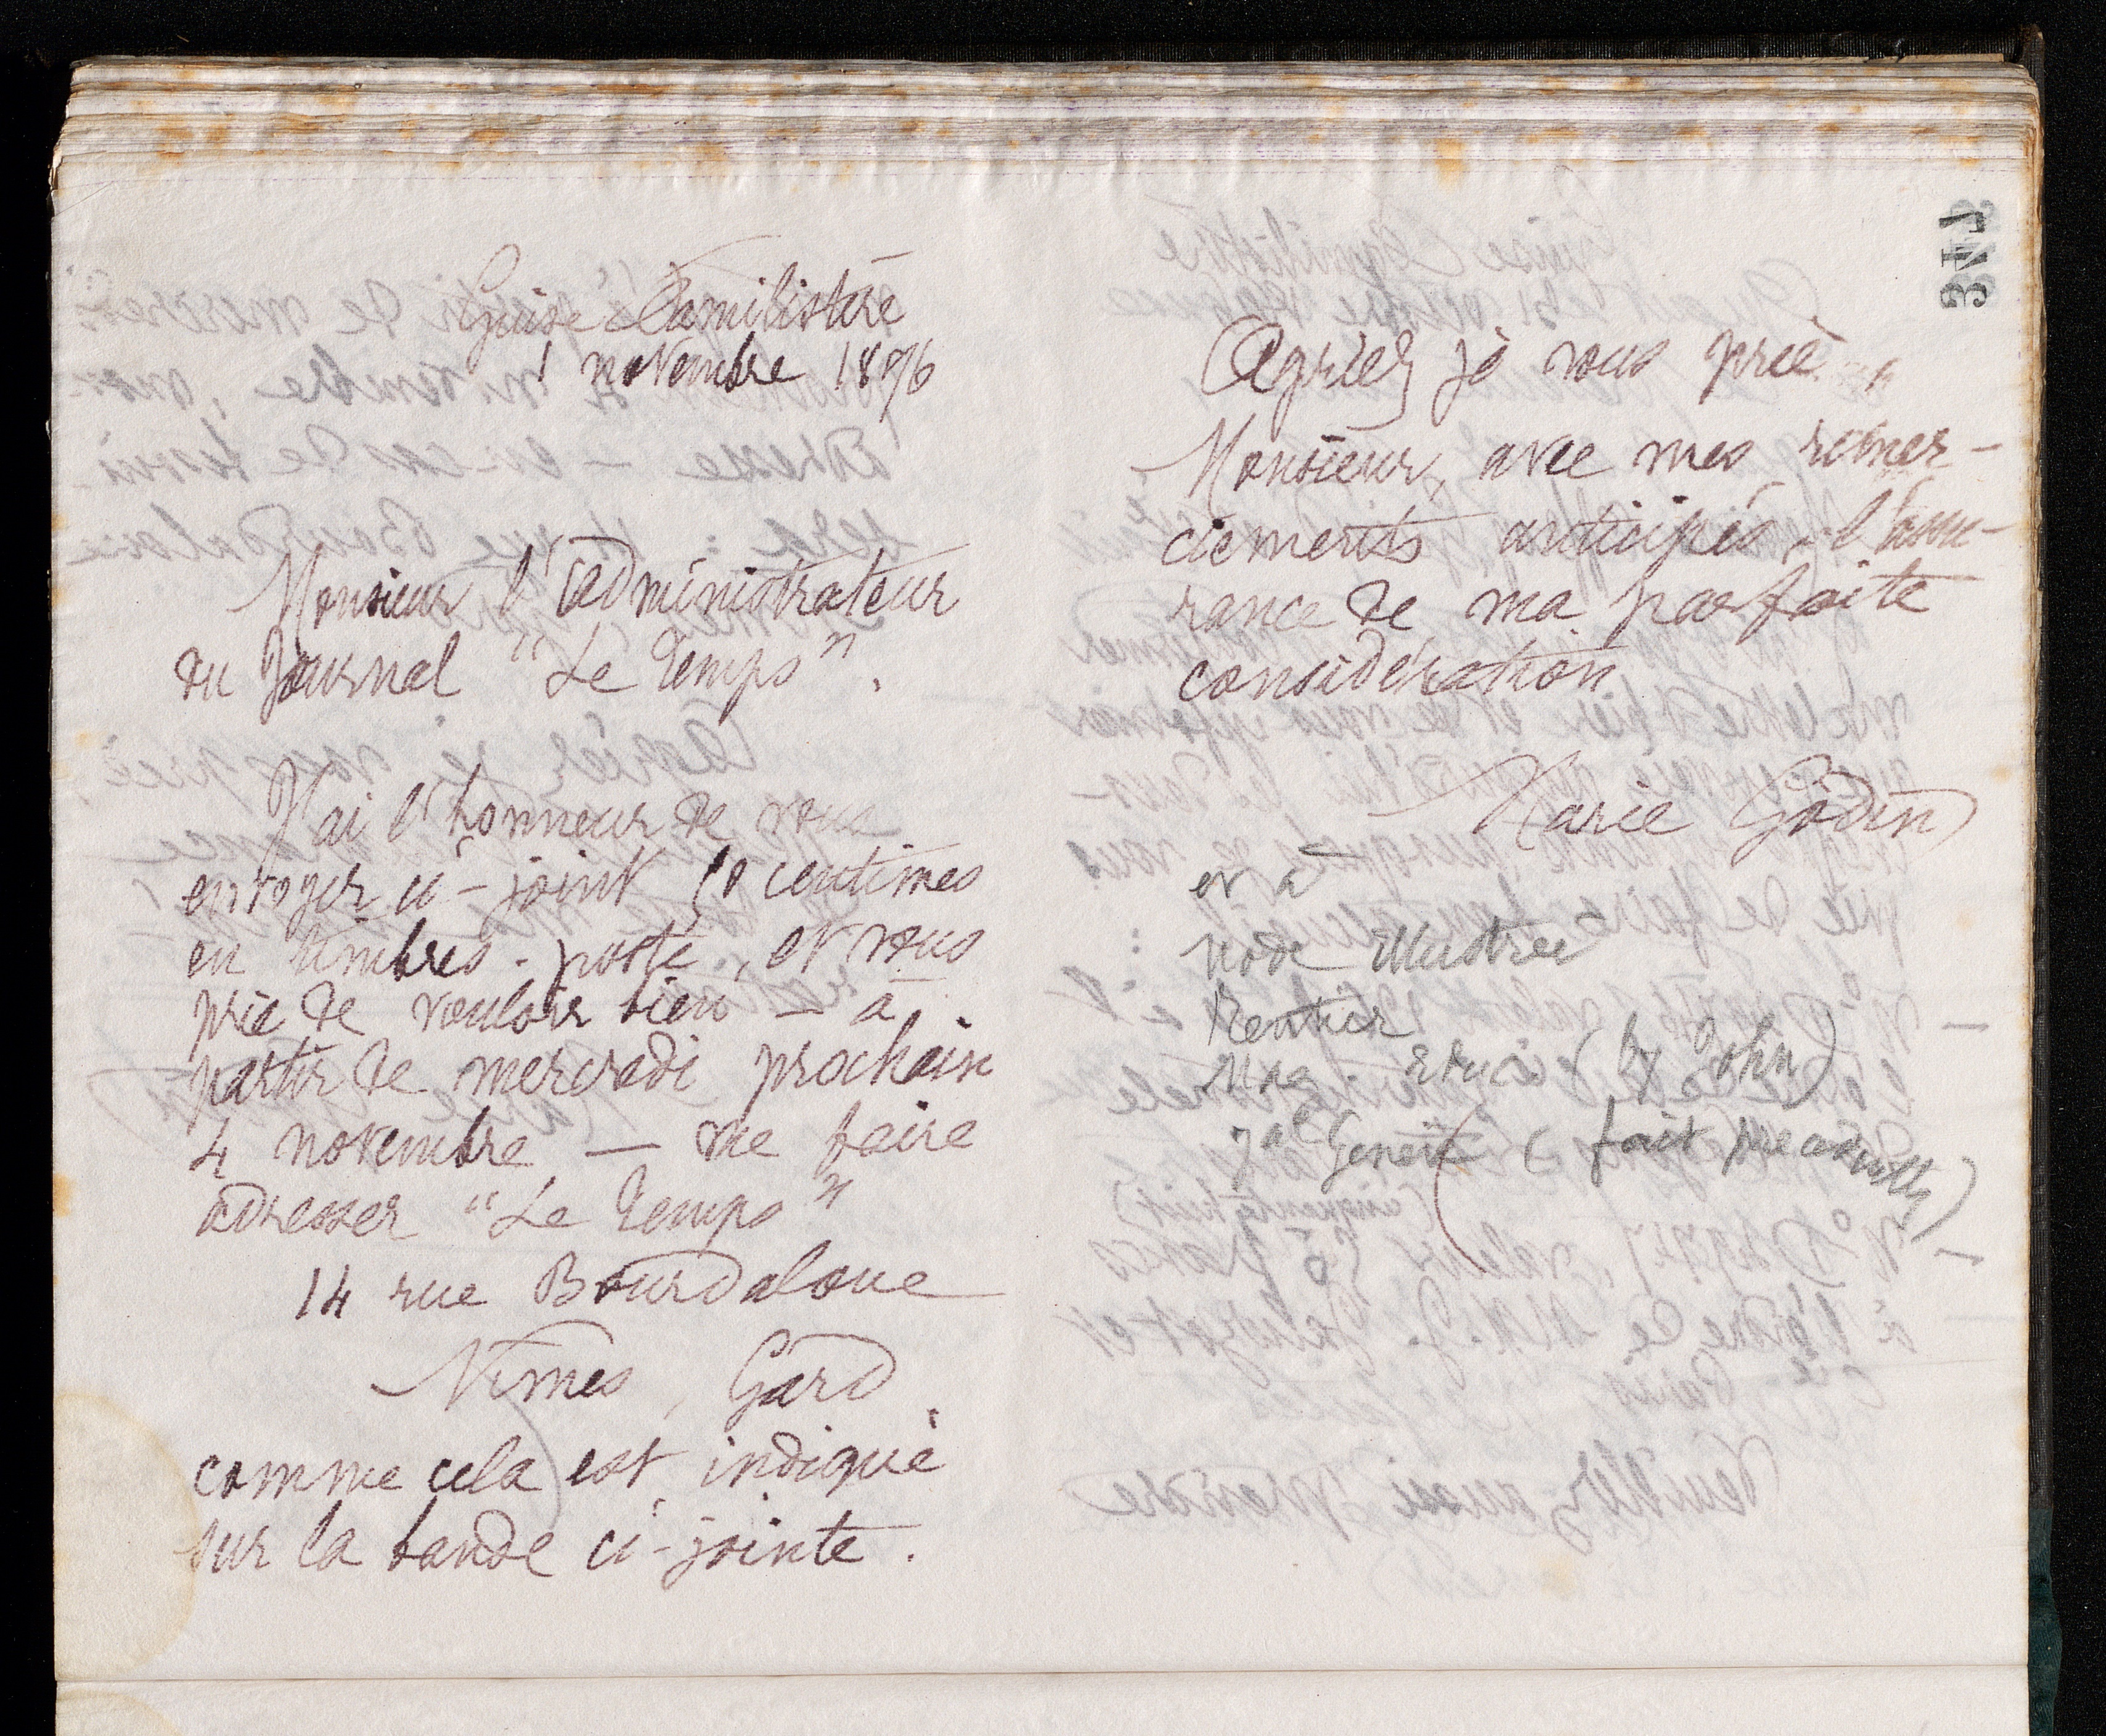 Guise Familistère
1 novembre 1896
Monsieur l'administrateur
du Journal "Le Temps".
J'ai l'honneur de vous
envoyer ci-joint 50 centimes
en timbres-poste, et vous
prie de vouloir bien – à
partir de mercredi prochain
4 novembre – me faire
adresser "Le Temps"
14 rue Bourdaloue
Nîmes, Gard
comme cela est indiqué
sur la bande ci-jointe.
Agréez je vous prie,
Monsieur, avec mes remer-
ciements anticipés, l'assu-
rance de ma parfaite
considération
Marie Godin
et à
Mode illustrée
Rentier
(by John)
Jal Genève (fait